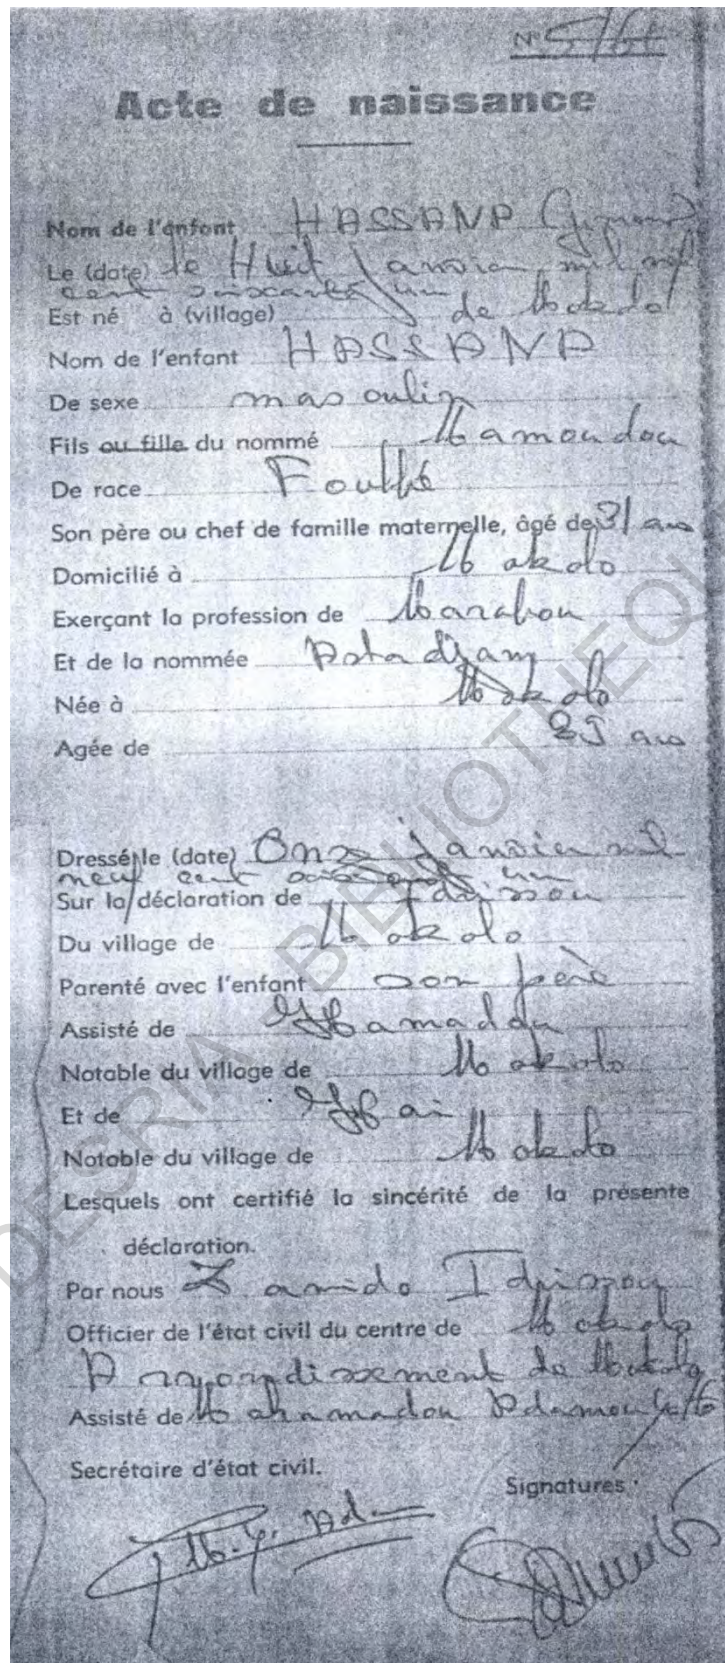 N° 5/61
Acte de naissance
Nom de l'enfant HASSANA
Le (date) le Huit Janvier mil neuf
cent soixante un
Est né à (village) de Mokolo
Nom de l'enfant HASSANA
De sexe masculin
Fils ou fille du nommé Mamoudou
De race Foulbé
Son père ou chef de famille maternelle, âgé de 31 ans
Domicilié à Mokolo
Exerçant la profession de Marabou
Et de la nommée
Née à Mokolo
Agée de 25 ans
Dressé le (date) Onze janvier mil
neuf cent soixante un
Sur la déclaration de Idrissou
Du village de Mokolo
Parenté avec l'enfant son père
Assisté de Hamadou
Notable du village de Mokolo
Et de
Notable du village de Mokolo
Lesquels ont certifié la sincérité de la présente
déclaration.
Par nous Lamido Idrissou
Officier de l'état civil du centre de Mokolo
Arrondissement de Mokolo
Assisté de Mahamadou
Secrétaire d'état civil.
Signatures :
DESRIA - BIBLIOTHEQU